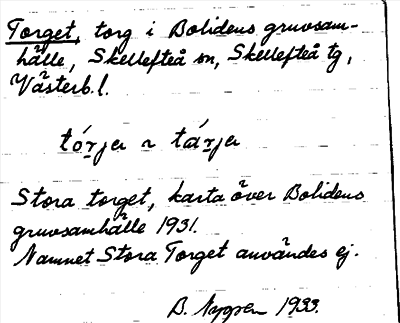 Torget, torg i Bolidens gruvsam-
hälle, Skellefteå sn, Skellefteå tg,
Västerb.l.
tórjer ~ tárjer
Stora torget, karta över Bolidens
gruvsamhälle 1931.
Namnet Stora Torget användes ej.
B. Nygren 1933.